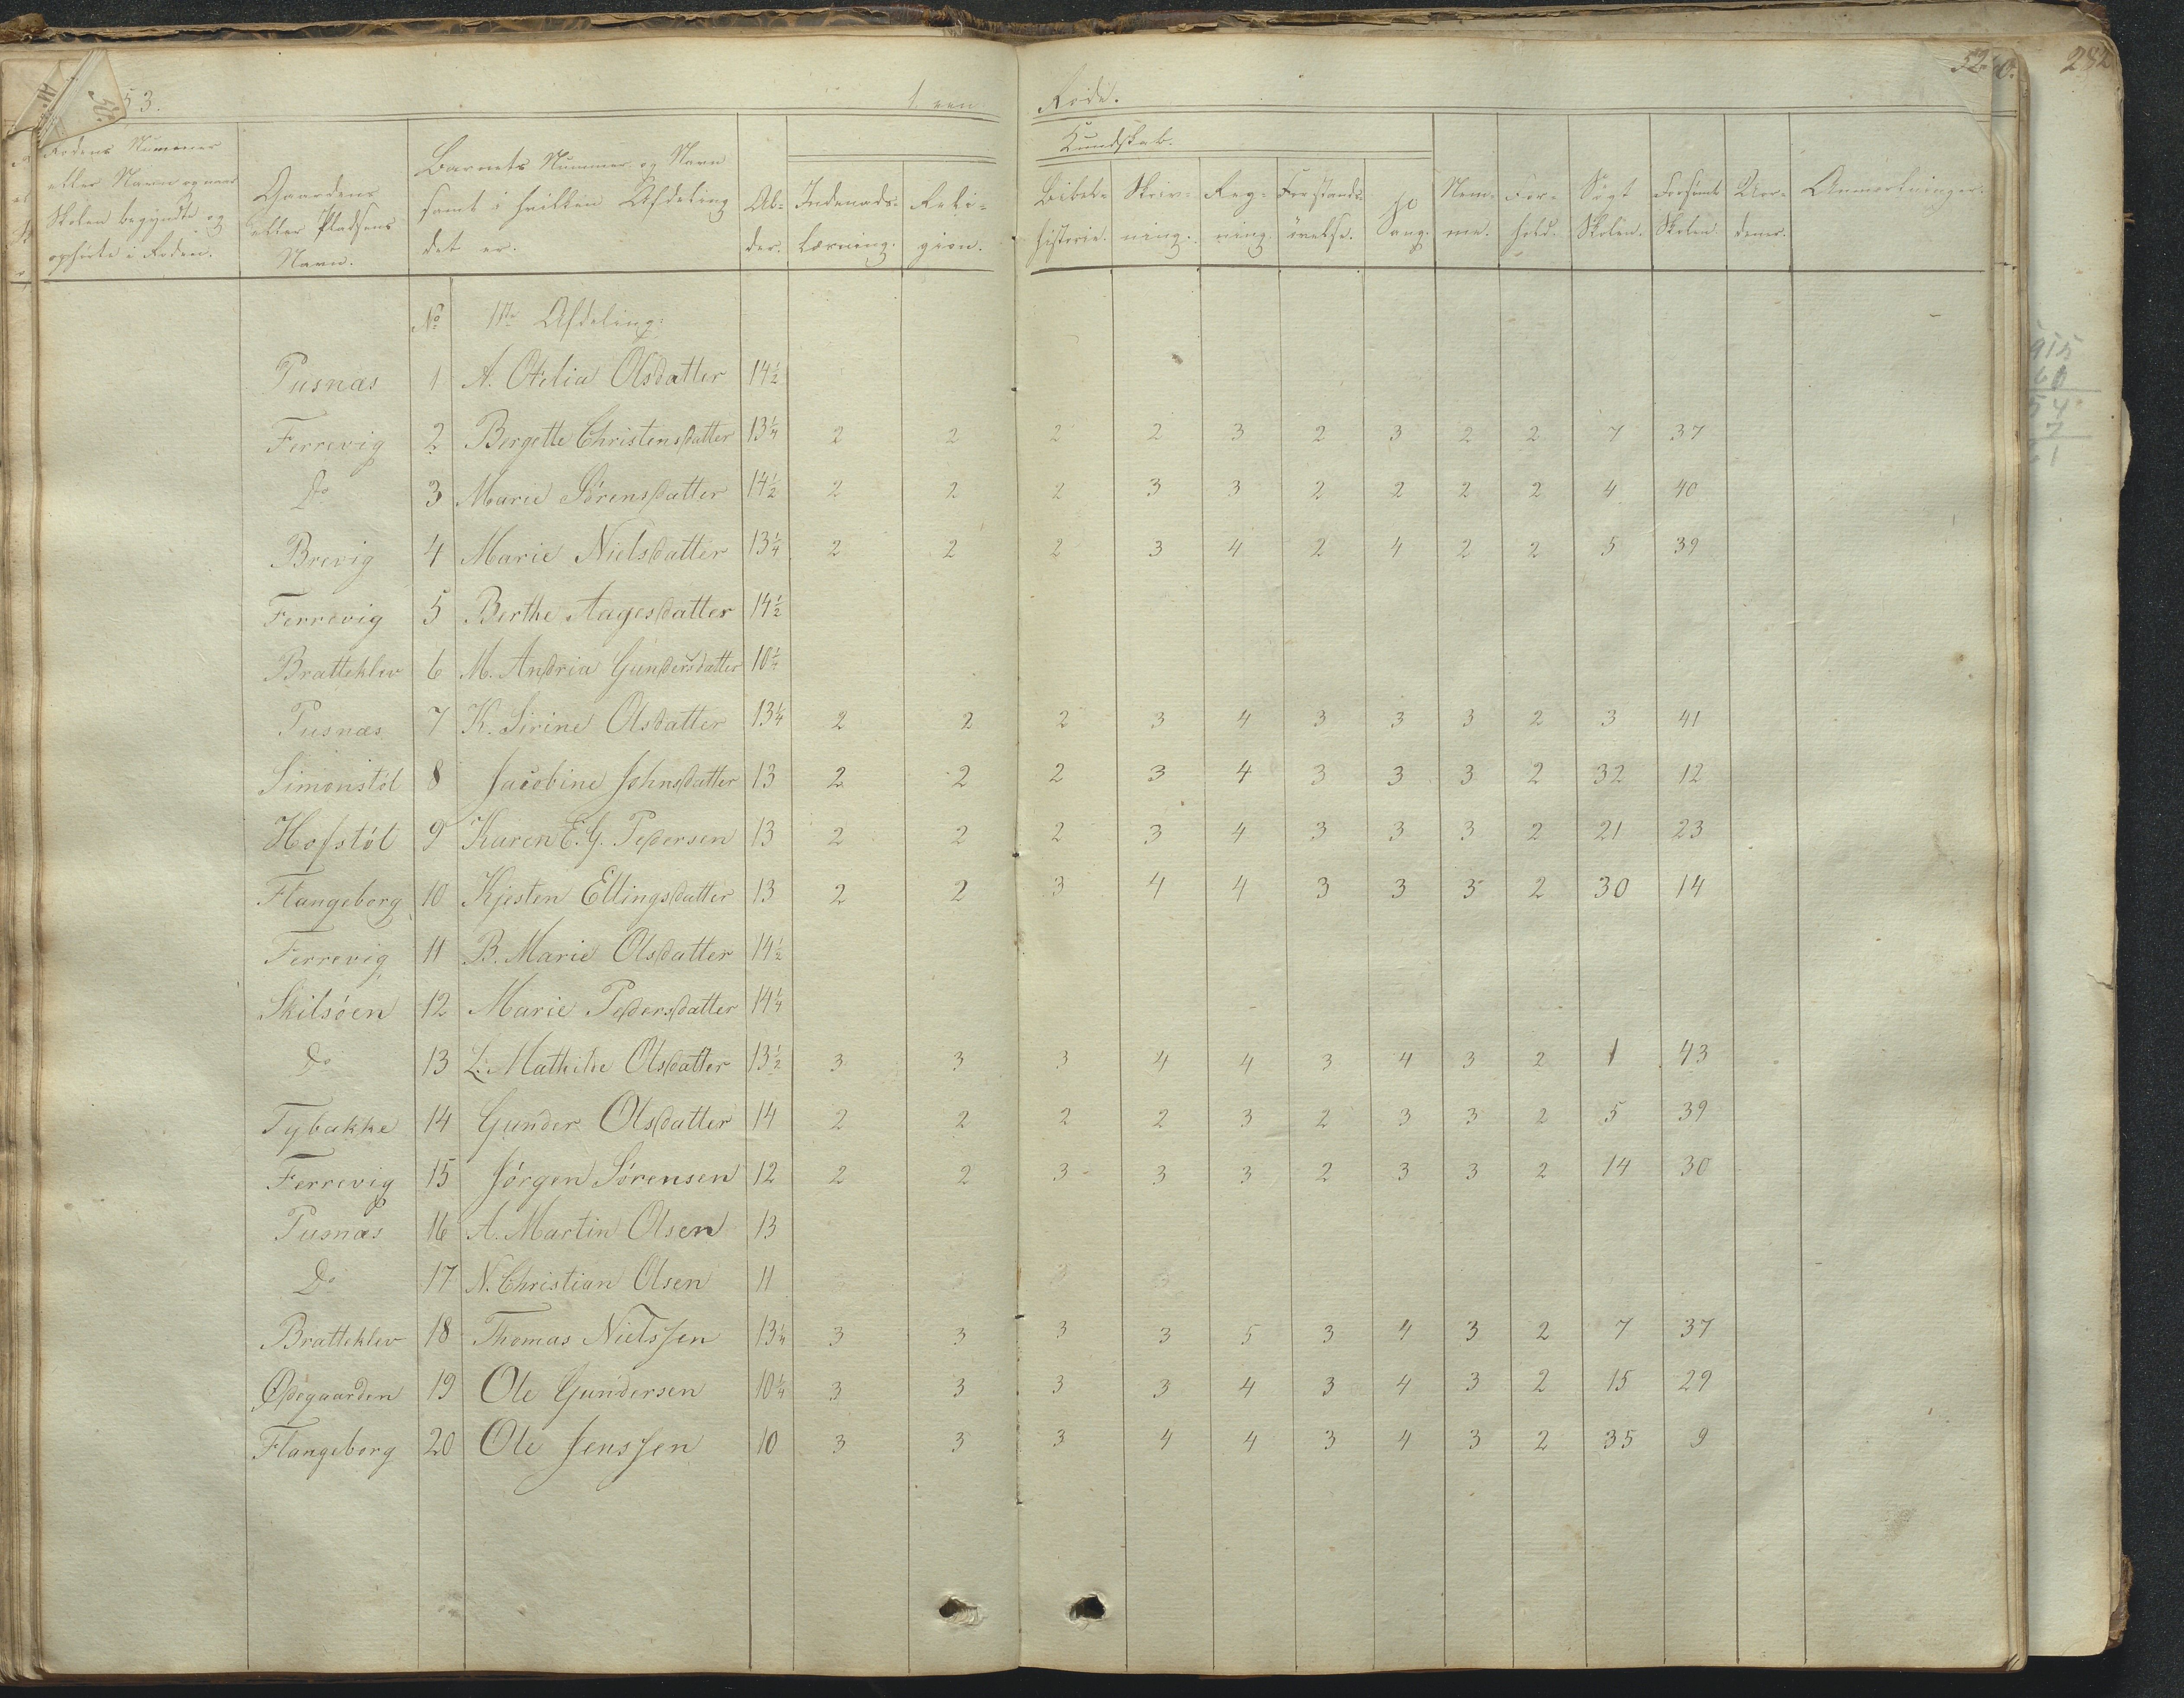 53.
1
Rode.
52.
Rodens Nummer
eller Navn og naar
Skolen begyndte og
ophørte i Roden.
Gaardens
eller Pladsens
Navn.
Barnets Nummer og Navn
samt i hvilken Afdeling
det er.
Al-
der.
Indenads-
Læsning.
Reli-
gion.
Kundskab.
Bibel-
historie.
Skriv-
ning.
Reg-
ning.
Forstands-
øvelse.
Sang.
Nem-
me.
For-
hold.
Søgt
Skolen.
Forsømt
Skolen.
Anmærkninger.
No 1ste Afdeling.
Pusnæs 1 A. Otelia Olsdatter 14½
Ferrevig 2 Bergette Christensdatter 13¼ 2 2 2 2 3 2 3 2 2 7 37
Do 3 Marie Sørensdatter 14½ 2 2 2 3 3 2 2 2 2 4 40
Brevig 4 Marie Nielsdatter 13¼ 2 2 2 3 4 2 4 2 2 5 39
Ferrevig 5 Berthe Aagesdatter 14½
Bratteklev 6 M. Andria Gundersdatter 10¼
Pusnæs 7 K. Sirine Olsdatter 13¼ 2 2 2 3 4 3 3 3 2 3 41
Simonstøl 8 Jacobine Johnsdatter 13 2 2 2 3 4 3 3 3 2 32 12
Hofstøl 9 Karen E. G. Pedersen 13 2 2 2 3 4 3 3 3 2 21 23
Flangeborg 10 Kjesten Ellingsdatter 13 2 2 3 4 4 3 3 3 2 30 14
Ferrevig 11 B. Marie Olsdatter 14½
Skilsøen 12 Marie Pedersdatter 14¼
Do 13 L. Mathilde Olsdatter 13½ 3 3 3 4 4 3 4 3 2 1 43
Tybakke 14 Gunder Olsdatter 14 2 2 2 2 3 2 3 3 2 5 39
Ferrevig 15 Jørgen Sørensen 12 2 2 3 3 3 2 3 3 2 14 30
Pusnæs 16 A. Martin Olsen 13
Do 17 N. Christian Olsen 11
Bratteklev 18 Thomas Nielssen 13¼ 3 3 3 3 5 3 4 3 2 7 37
Ødegaarden 19 Ole Gundersen 10¼ 3 3 3 3 4 3 4 3 2 15 29
Flangeborg 20 Ole Jenssen 10 3 3 3 4 4 3 4 3 2 35 9